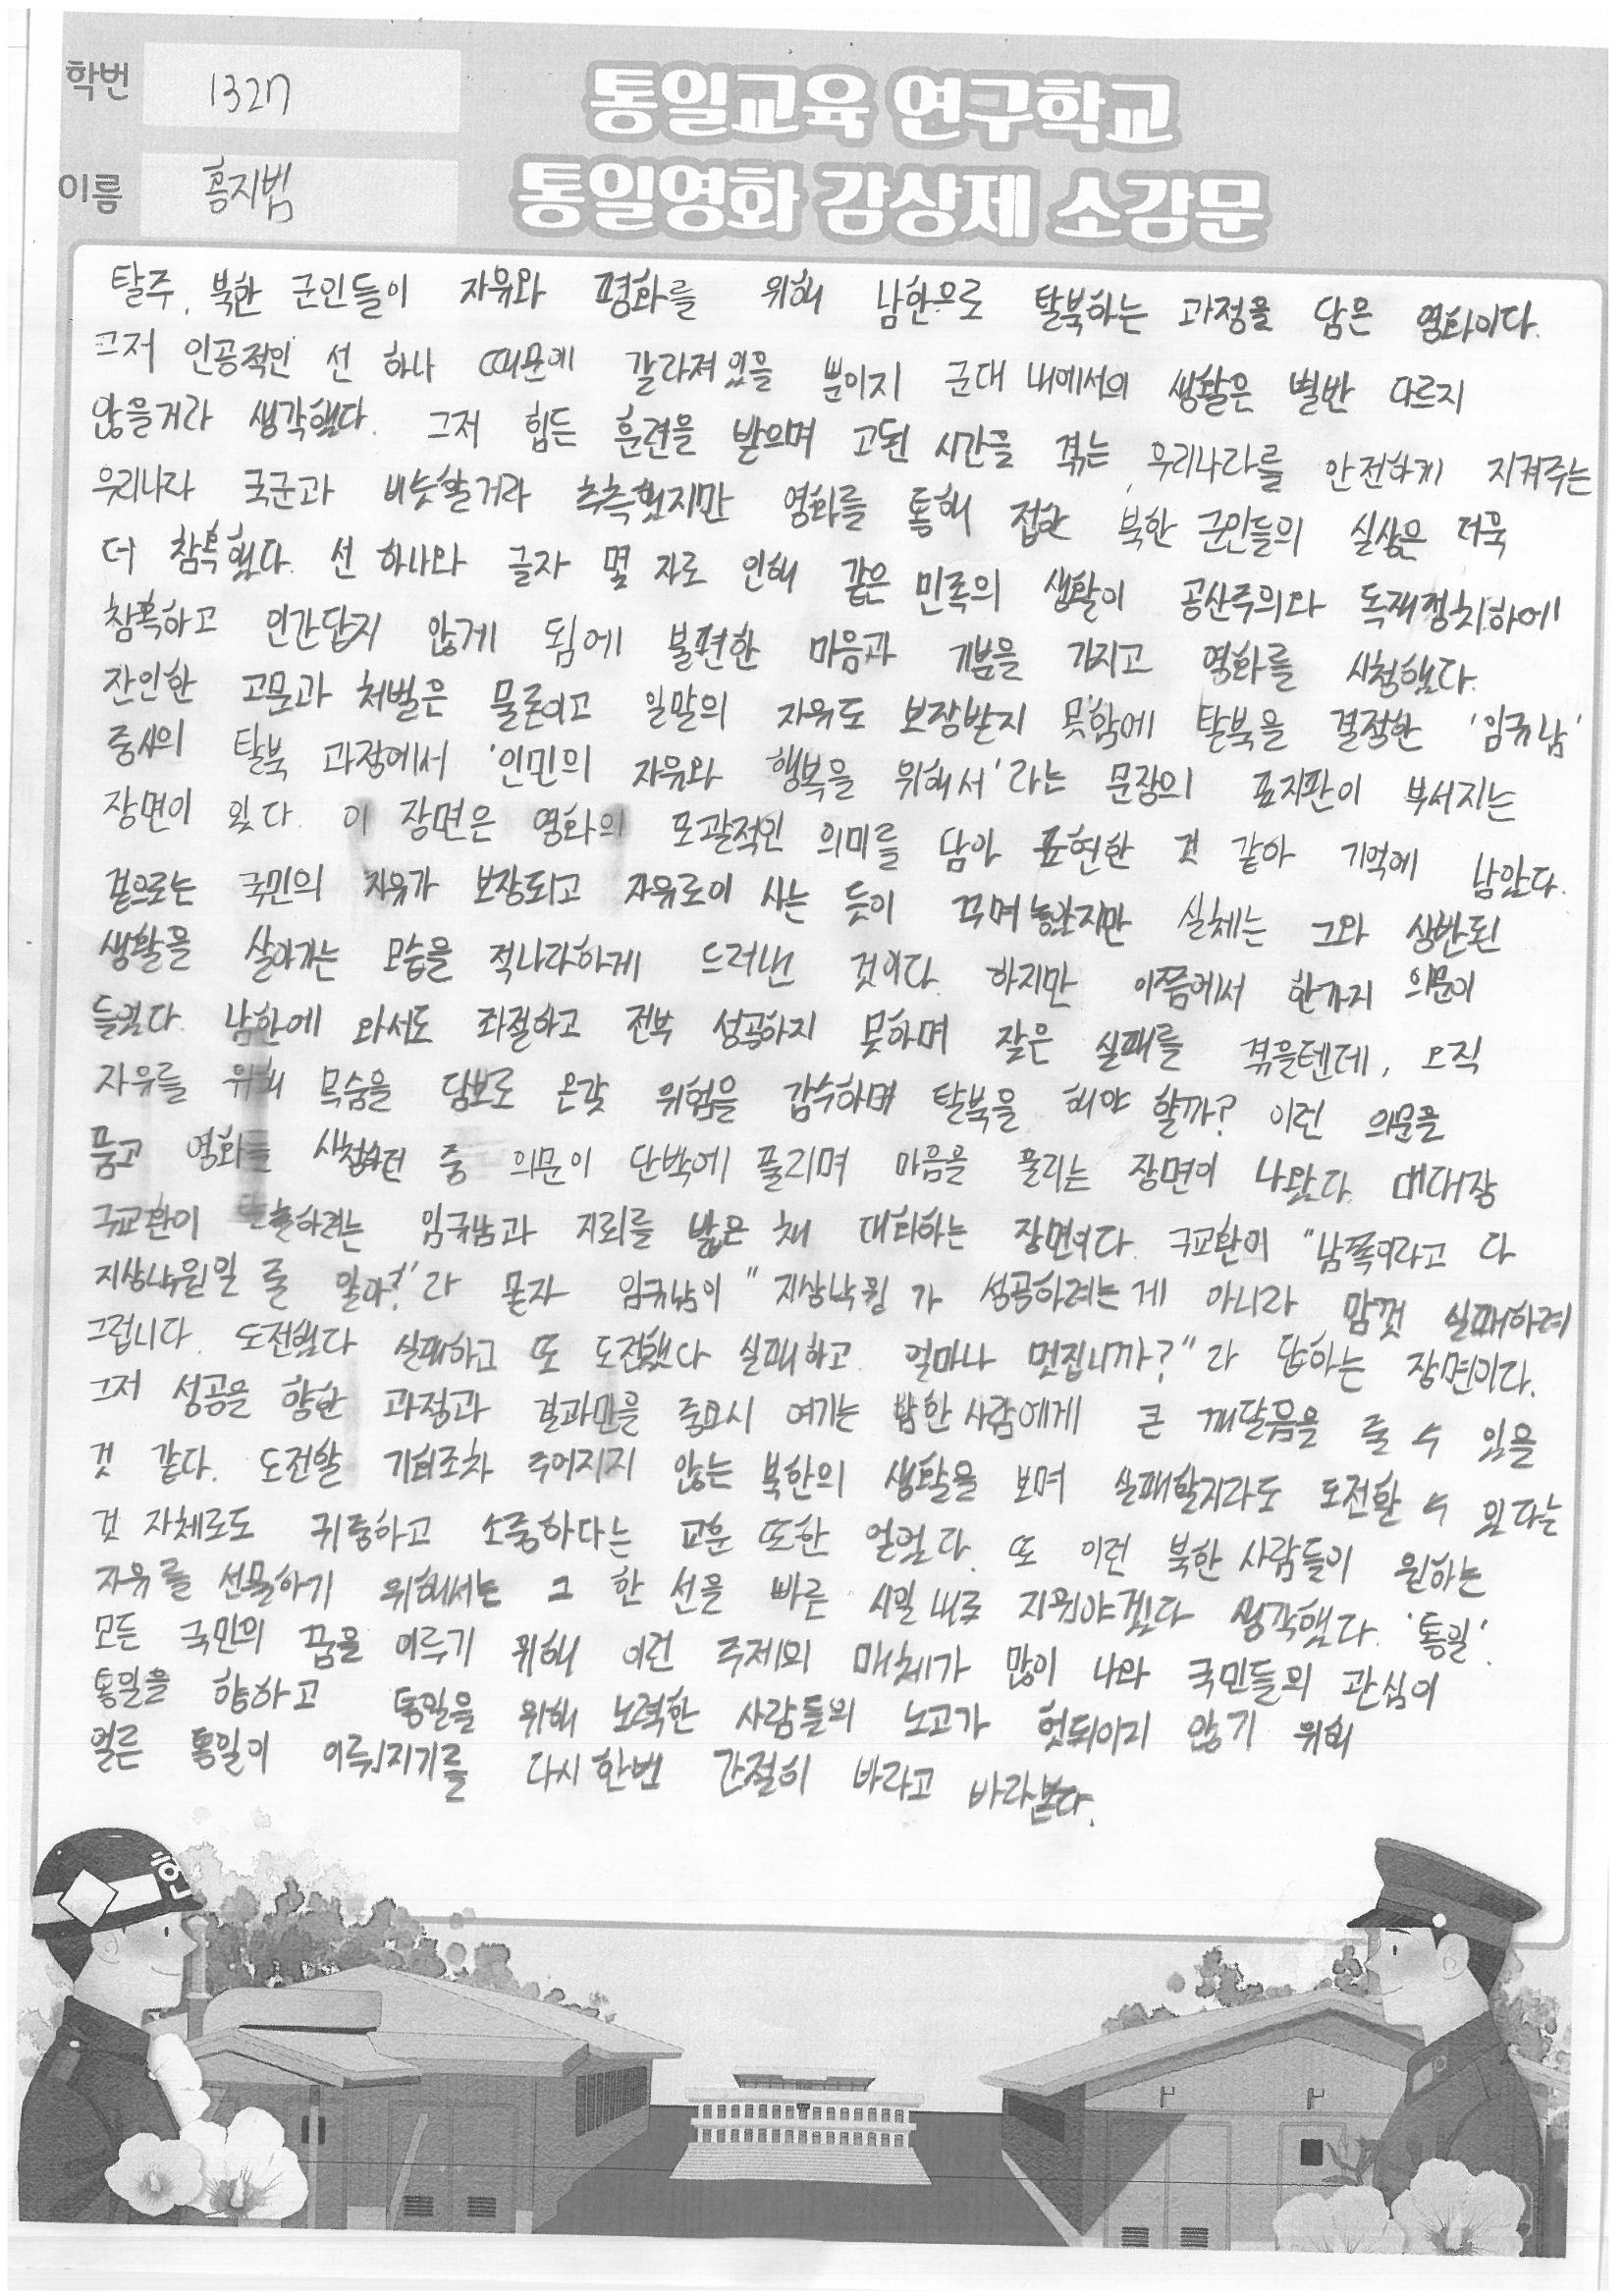 학번 1327
통일교육 연구학교
이름 홍지범
통일영화 감상제 소감문
탈주, 북한 군인들이 자유와 평화를 위해 남한으로 탈북하는 과정을 담은 영화이다.
그저 인공적인 선 하나 때문에 갈라져있을 뿐이지 군대 내에서의 생활은 별반 다르지
않을거라 생각했다. 그저 힘든 훈련을 받으며 고된 시간을 겪는, 우리나라를 안전하게 지켜주는
우리나라 국군과 비슷할거라 추측했지만 영화를 통해 접한 북한 군인들의 실상은 더욱
더 참혹했다. 선 하나와 글자 몇 자로 인해 같은 민족의 생활이 공산주의와 독재정치하에
참혹하고 인간답지 않게 됨에 불편한 마음과 기분을 가지고 영화를 시청했다.
잔인한 고문과 처벌은 물론이고 일말의 자유도 보장받지 못함에 탈북을 결정한 '임규남'
중사의 탈북 과정에서 '인민의 자유와 행복을 위해서'라는 문장의 표지판이 부서지는
장면이 있다. 이 장면은 영화의 포괄적인 의미를 담아 표현한 것 같아 기억에 남았다.
겉으로는 국민의 자유가 보장되고 자유로이 사는 듯이 꾸며놓았지만 실체는 그와 상반된
생활을 살아가는 모습을 적나라하게 드러낸 것이다. 하지만 이쯤에서 한가지 의문이
들었다. 남한에 와서도 좌절하고 전부 성공하지 못하며 잦은 실패를 겪을텐데, 오직
자유를 위해 목숨을 담보로 온갖 위험을 감수하며 탈북을 해야 할까? 이런 의문을
품고 영화를 시청하던 중 의문이 단박에 풀리며 마음을 울리는 장면이 나왔다. 대대장
구교환이 탈출하려는 임규남과 지뢰를 밟은 채 대화하는 장면이다. 구교환이 "남쪽이라고 다
지상낙원일 줄 알아?"라 묻자 임규남이 "지상낙원 가 성공하려는 게 아니라 맘껏 실패하려
그럽니다. 도전했다 실패하고 또 도전했다 실패하고. 얼마나 멋집니까?"라 답하는 장면이다.
그저 성공을 향한 과정과 결과만을 중요시 여기는 남한 사람에게 큰 깨달음을 줄 수 있을
것 같다. 도전할 기회조차 주어지지 않는 북한의 생활을 보며 실패할지라도 도전할 수 있다는
것 자체로도 귀중하고 소중하다는 교훈 또한 얻었다. 또 이런 북한 사람들이 원하는
자유를 선물하기 위해서는 그 한 선을 빠른 시일 내로 지워야겠다 생각했다. '통일'.
모든 국민의 꿈을 이루기 위해 이런 주제의 매체가 많이 나와 국민들의 관심이
통일을 향하고 통일을 위해 노력한 사람들의 노고가 헛되이지 않기 위해
얼른 통일이 이뤄지기를 다시 한번 간절히 바라고 바라본다.
헌